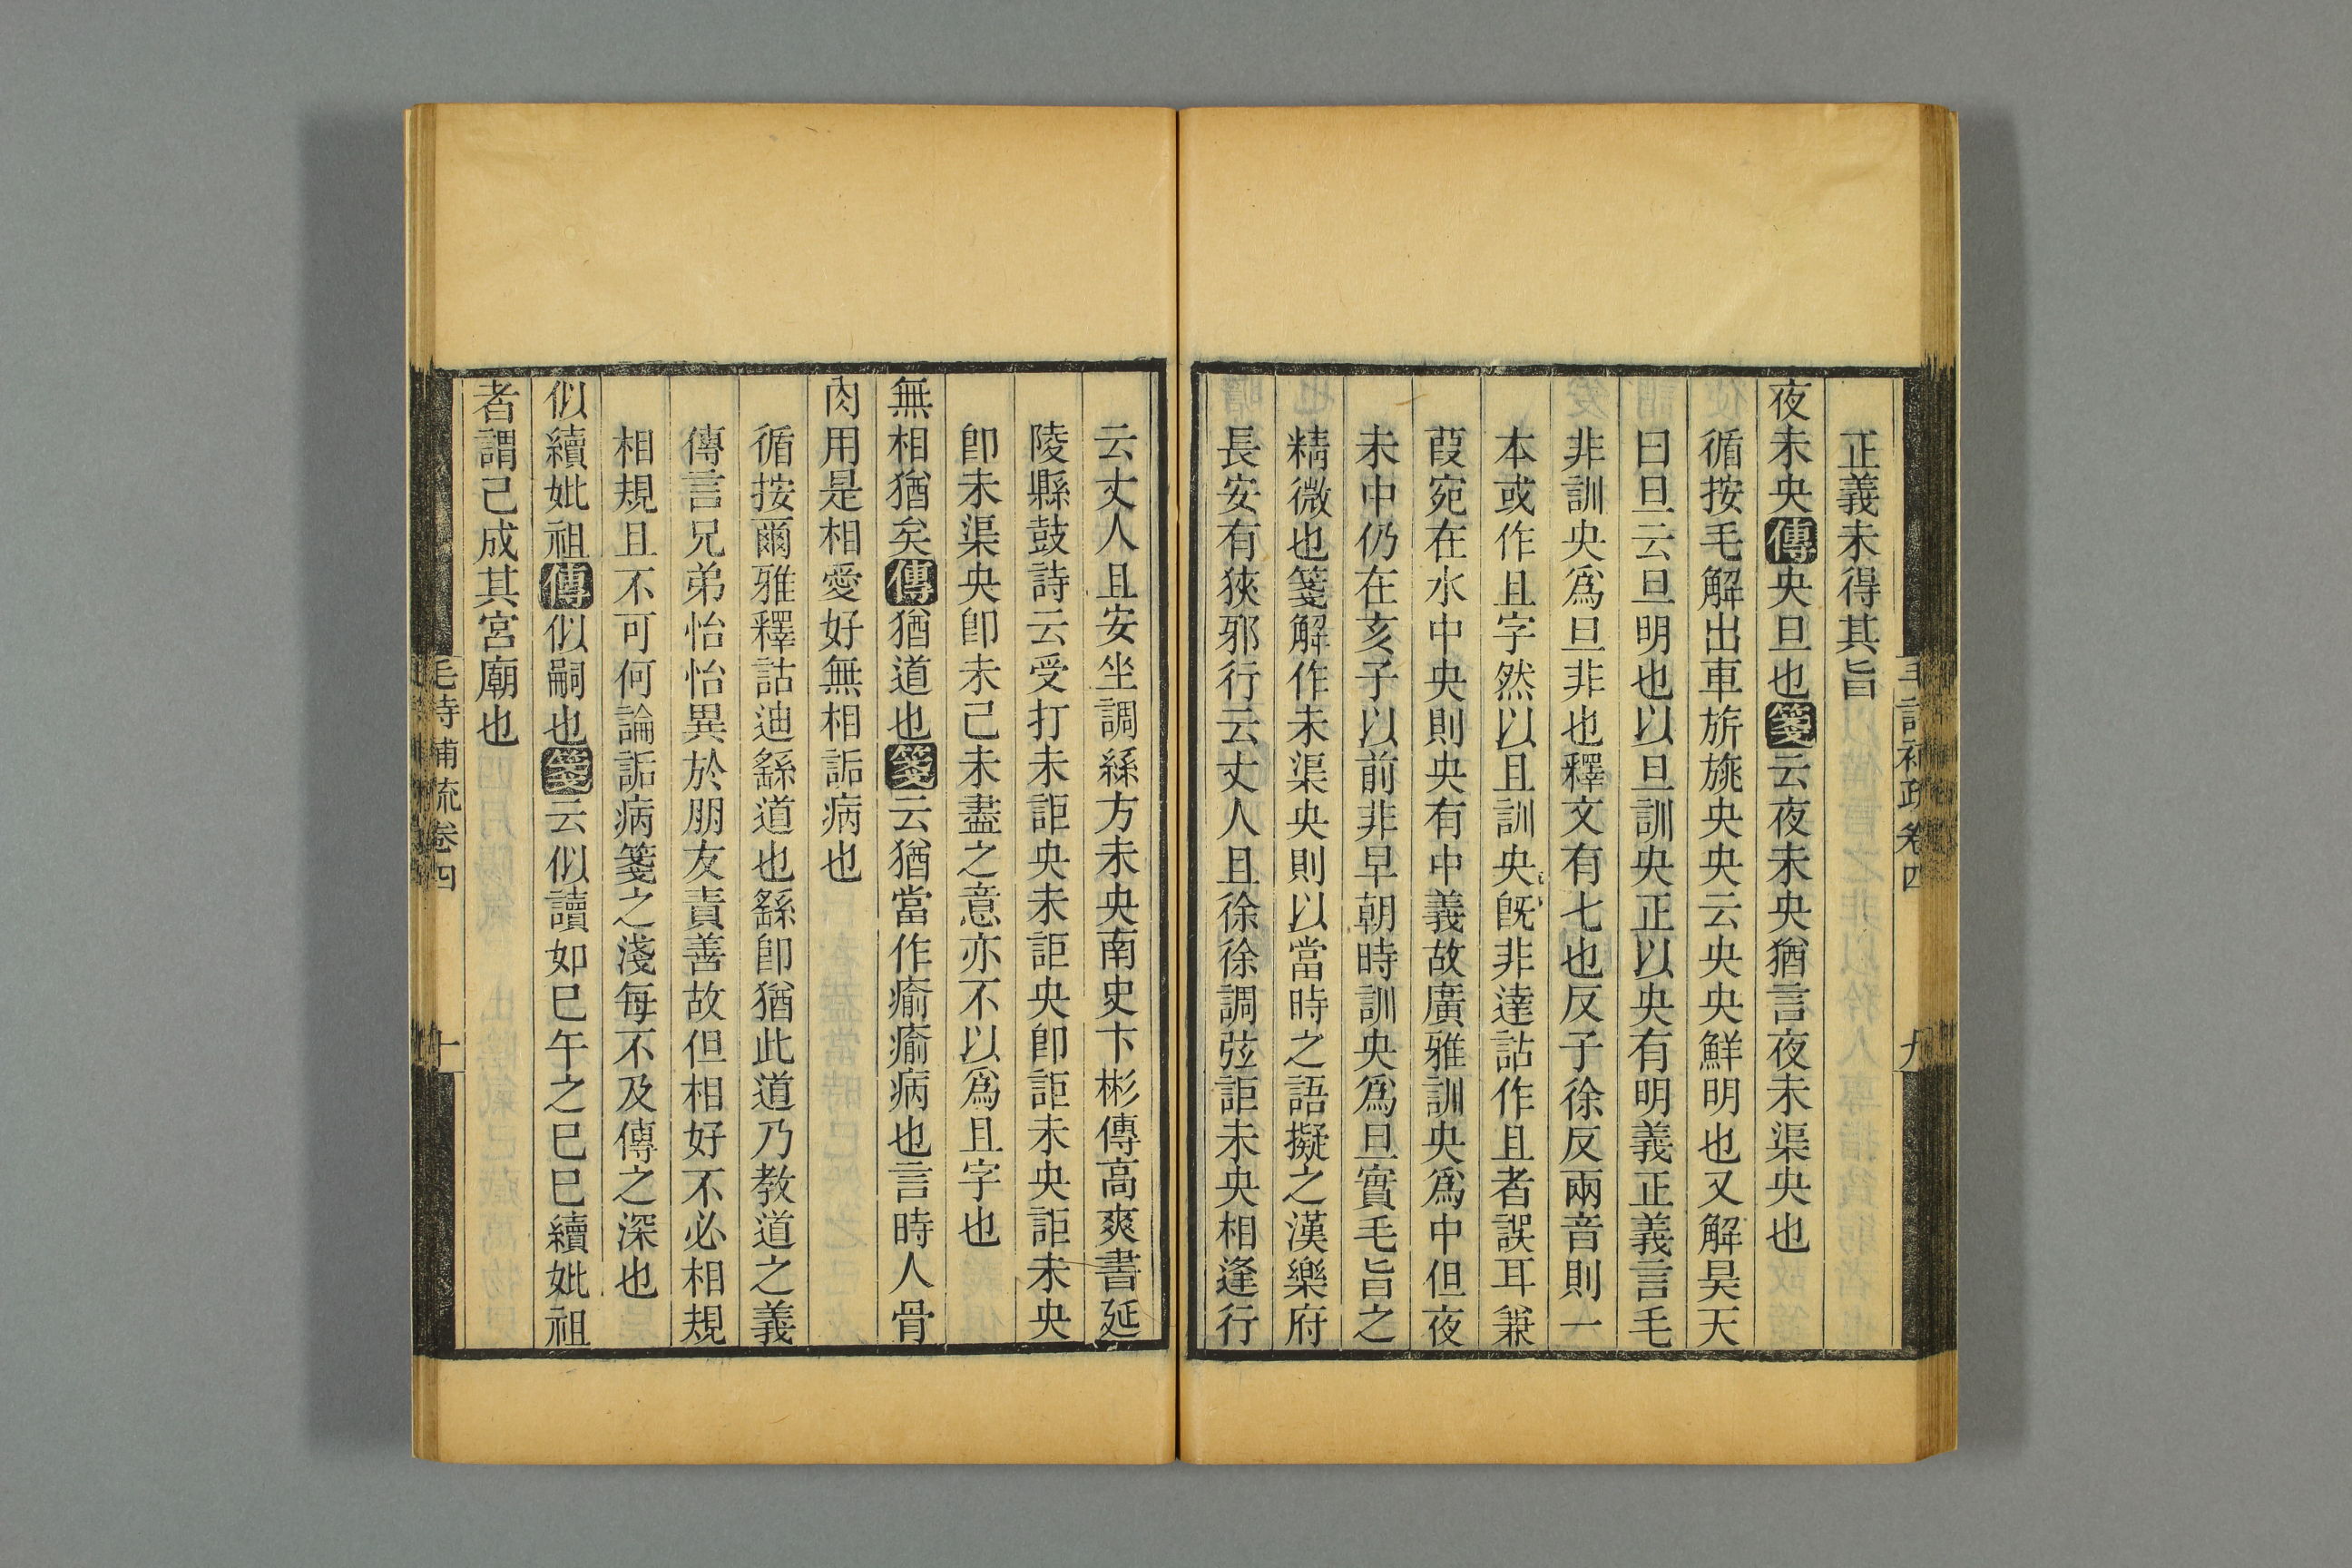 正義未得其旨
夜未央傳央旦也箋云夜未央猶言夜未渠央也
循按毛解出車旂旐央央云央央鮮明也又解昊天
曰旦云旦明也以旦訓央正以央有明義正義言毛
非訓央爲旦非也釋文有七也反子徐反兩音則一
本或作且字然以且訓央既非達詁作且者誤耳蒹
葭宛在水中央則央有中義故廣雅訓央爲中但夜
未中仍在亥子以前非早朝時訓央爲旦實毛旨之
精微也箋解作未渠央則以當時之語擬之漢樂府
長安有狹邪行云丈人且徐徐調弦詎未央相逢行
毛詩補疏卷四
九
云丈人且安坐調絲方未央南史卞彬傳高爽書延
陵縣鼓詩云受打未詎央未詎央卽詎未央詎未央
卽未渠央卽未己未盡之意亦不以爲且字也
無相猶矣傳猶道也箋云猶當作瘉瘉病也言時人骨
肉用是相愛好無相詬病也
循按爾雅釋詁迪繇道也繇卽猶此道乃教道之義
傳言兄弟怡怡異於朋友責善故但相好不必相規
相規且不可何論詬病箋之淺每不及傳之深也
似續妣祖傳似嗣也箋云似讀如巳午之巳巳續妣祖
者謂己成其宮廟也
毛詩補疏卷四
十